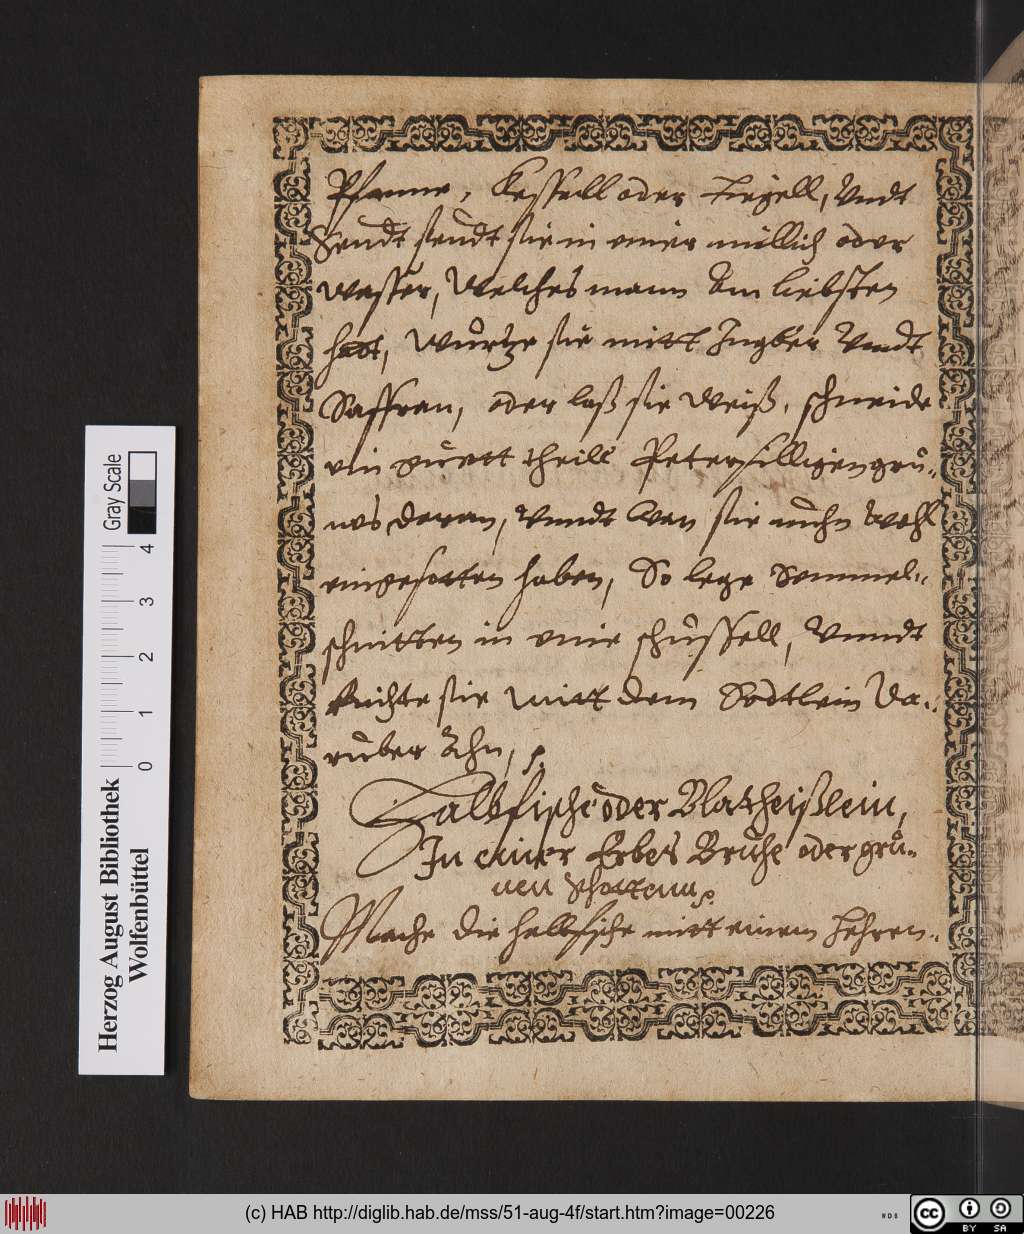 Pfanne, Kessell oder Tiegell, Vndt
Sendt sendt sie in einer müllich oder
wasser, Welches mann Am liebsten
hatt, würtze sie mitt Ingber Vndt
Saffran, oder laß sie Weiß, schneide
ein guett theill Petersilligengrü-
nes daran, Vnndt Wen sie nuhn Wohl
eingesotten haben, So lege Semmel-
schnitten in eine schüssell, Vnndt
Richte sie mitt dem Sodtlein Da-
rüber Ahn,
Halbfische oder Blatheißlein,
In einer Erbes Brühe oder grü-
nen Schottenn
Mache die halbfische mitt einem Hehren-
Gray Scale
0 1 2 3 4
Herzog August Bibliothek
Wolfenbüttel
(c) HAB http://diglib.hab.de/mss/51-aug-4f/start.htm?image=00226
WDB
cc BY SA